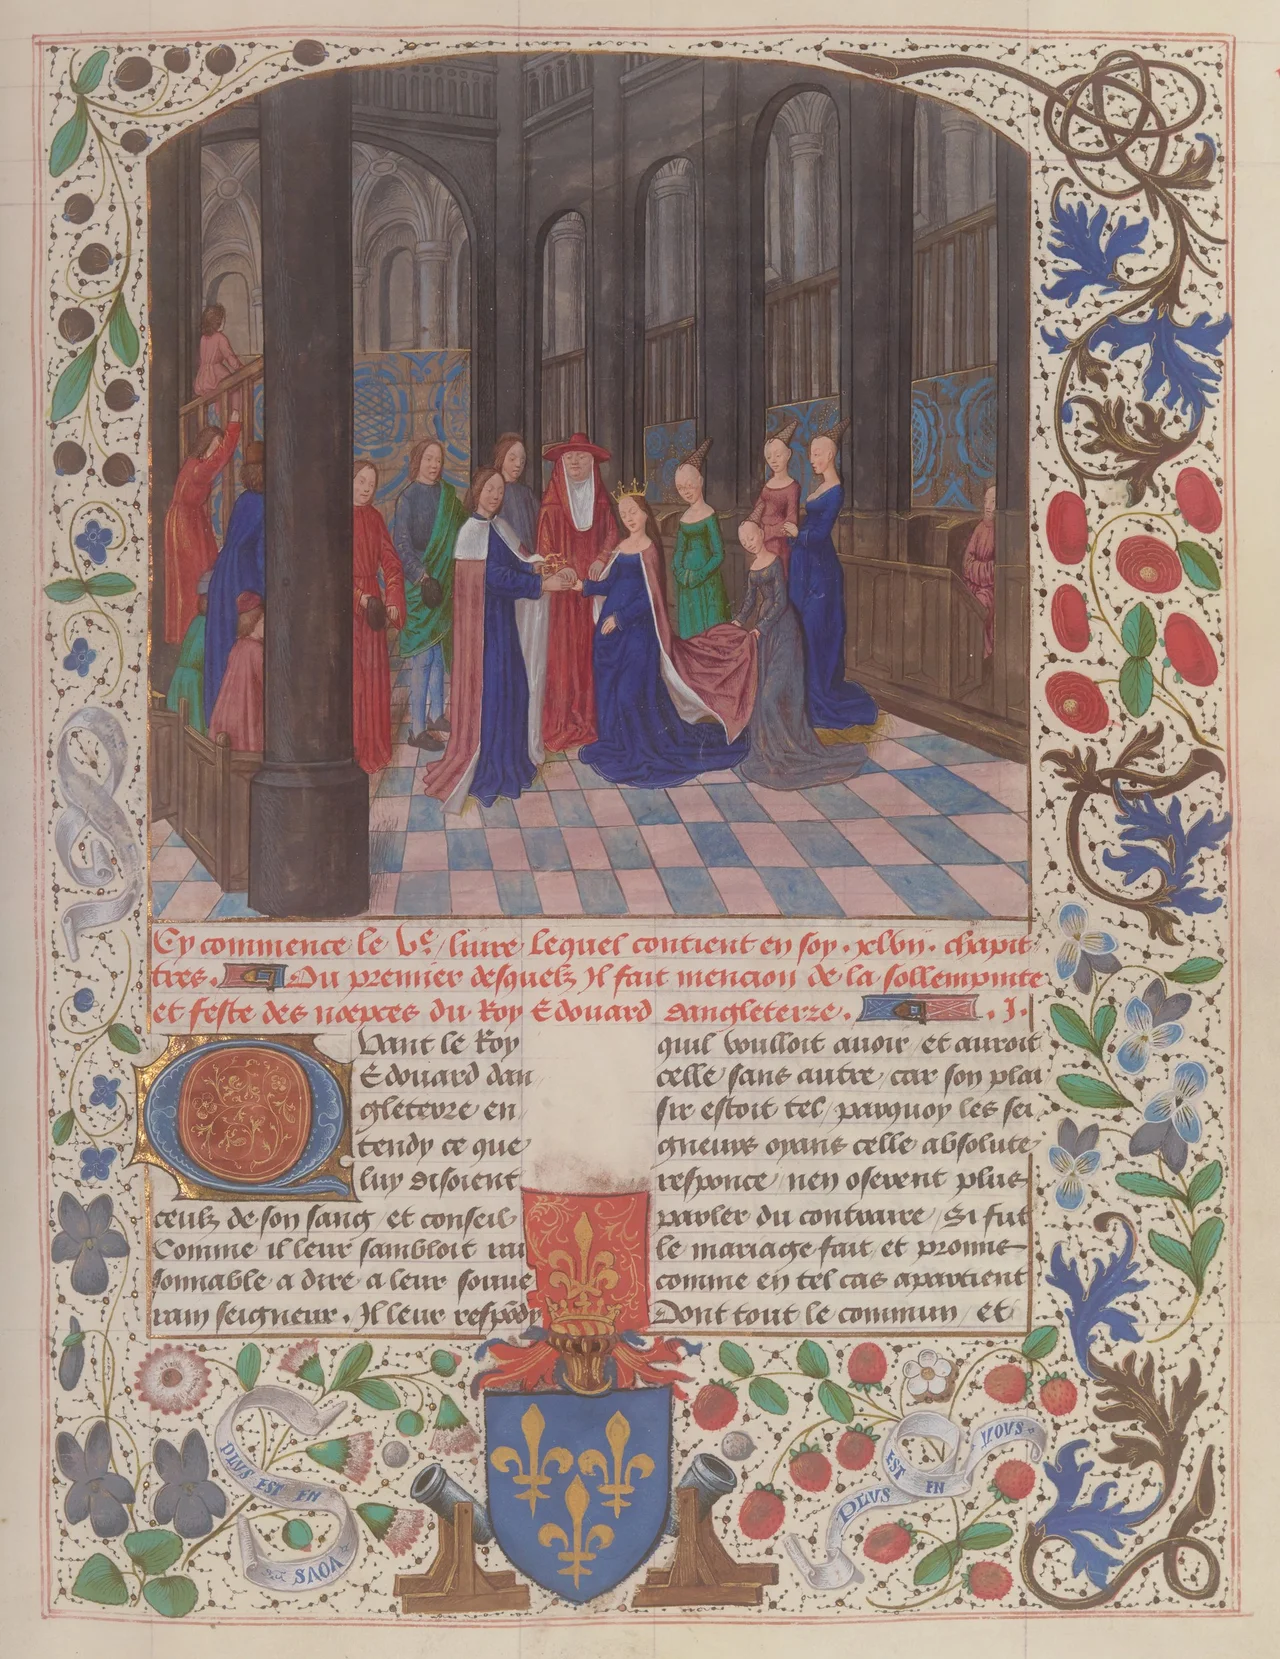 Cy commence le Ve. livre lequel contient en soy .xlvii. chapit
tres. Du premier desquelz Il fait mencion de la sollempnite
et feste des noepces du Roy Edouard dangleterre. .J.
Quant le Roy
Edouard dan
gleterre en
tendy ce que
luy disoient
ceulz de son sang / et conseil
Comme il leur sambloit rai
sonnable a dire a leur souve
rain seigneur. Il leur respondy
quil voulloit avoir / et auroit
celle sans autre / car son plai
sir estoit tel / parquoy les sei
gneurs oyans celle absolute
responce / nen oserent plus
parler du contraire / Si fut
le mariage fait et promis
comme en tel cas apartient
Dont tout le commun / et
PLUS EST EN
VOUS
PLUS EST EN VOUS